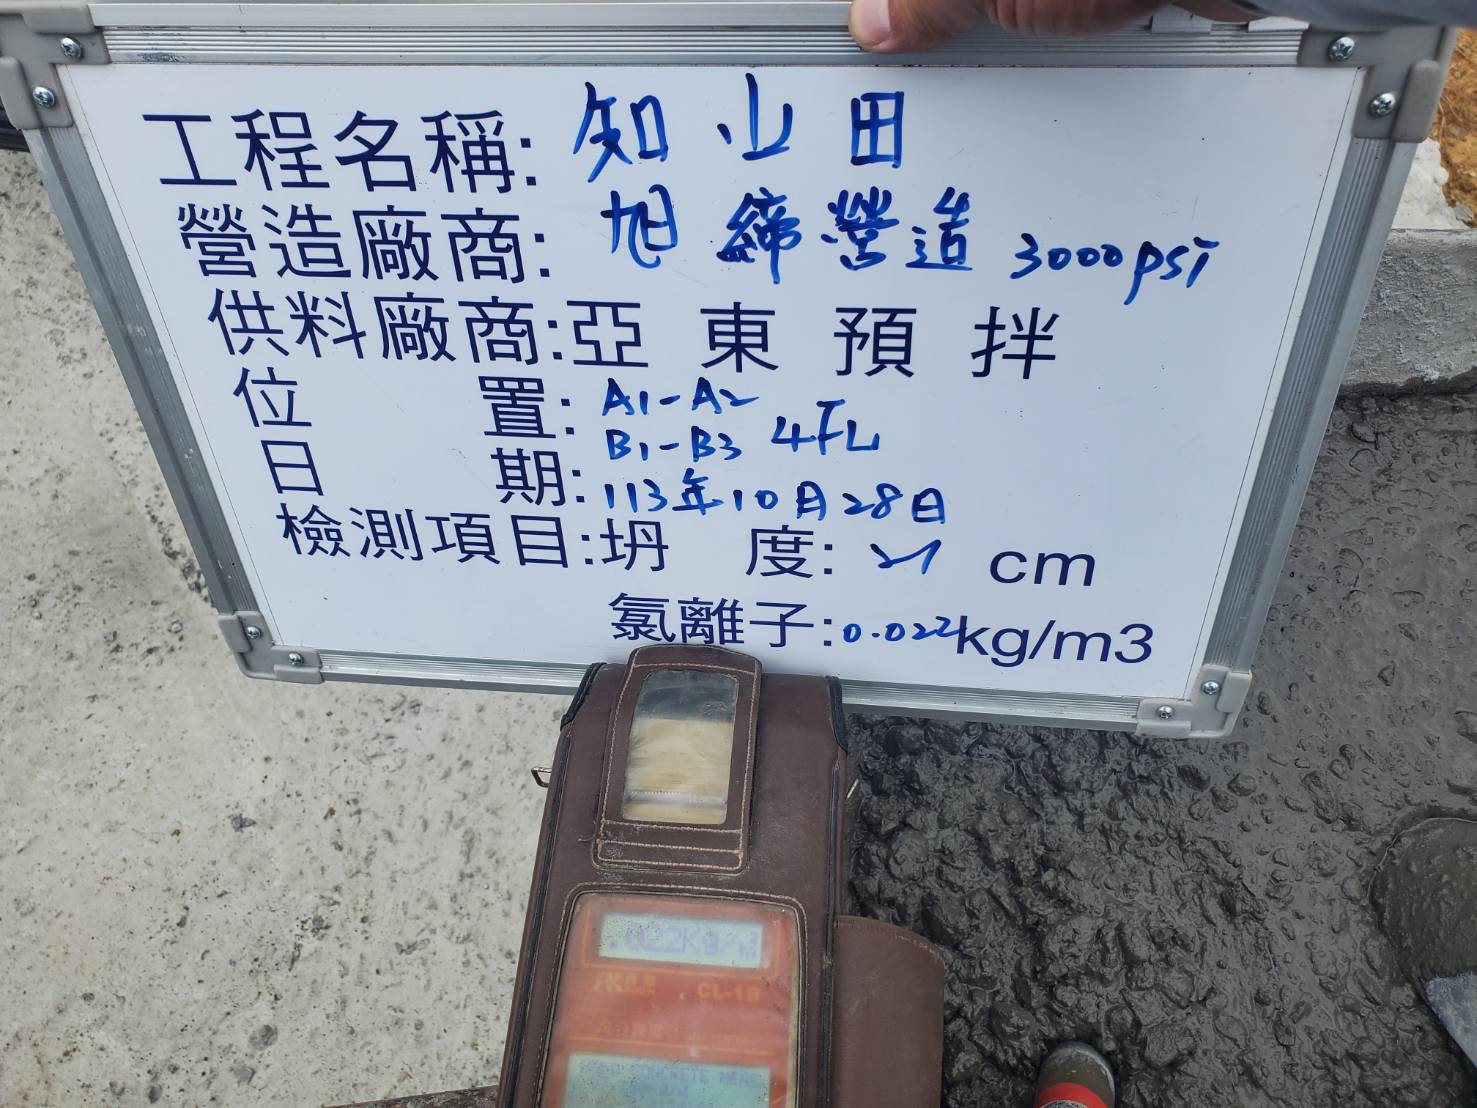 工程名稱: 知山田
營造廠商: 旭締營造 3000psi
供料廠商:亞東預拌
位置: A1-A2
B1-B3 4FL
日期: 113年10月28日
檢測項目:坍度: 21 cm
氯離子:0.022kg/m3
.022Kg/M
CL-1B
CONCRETE MEAS